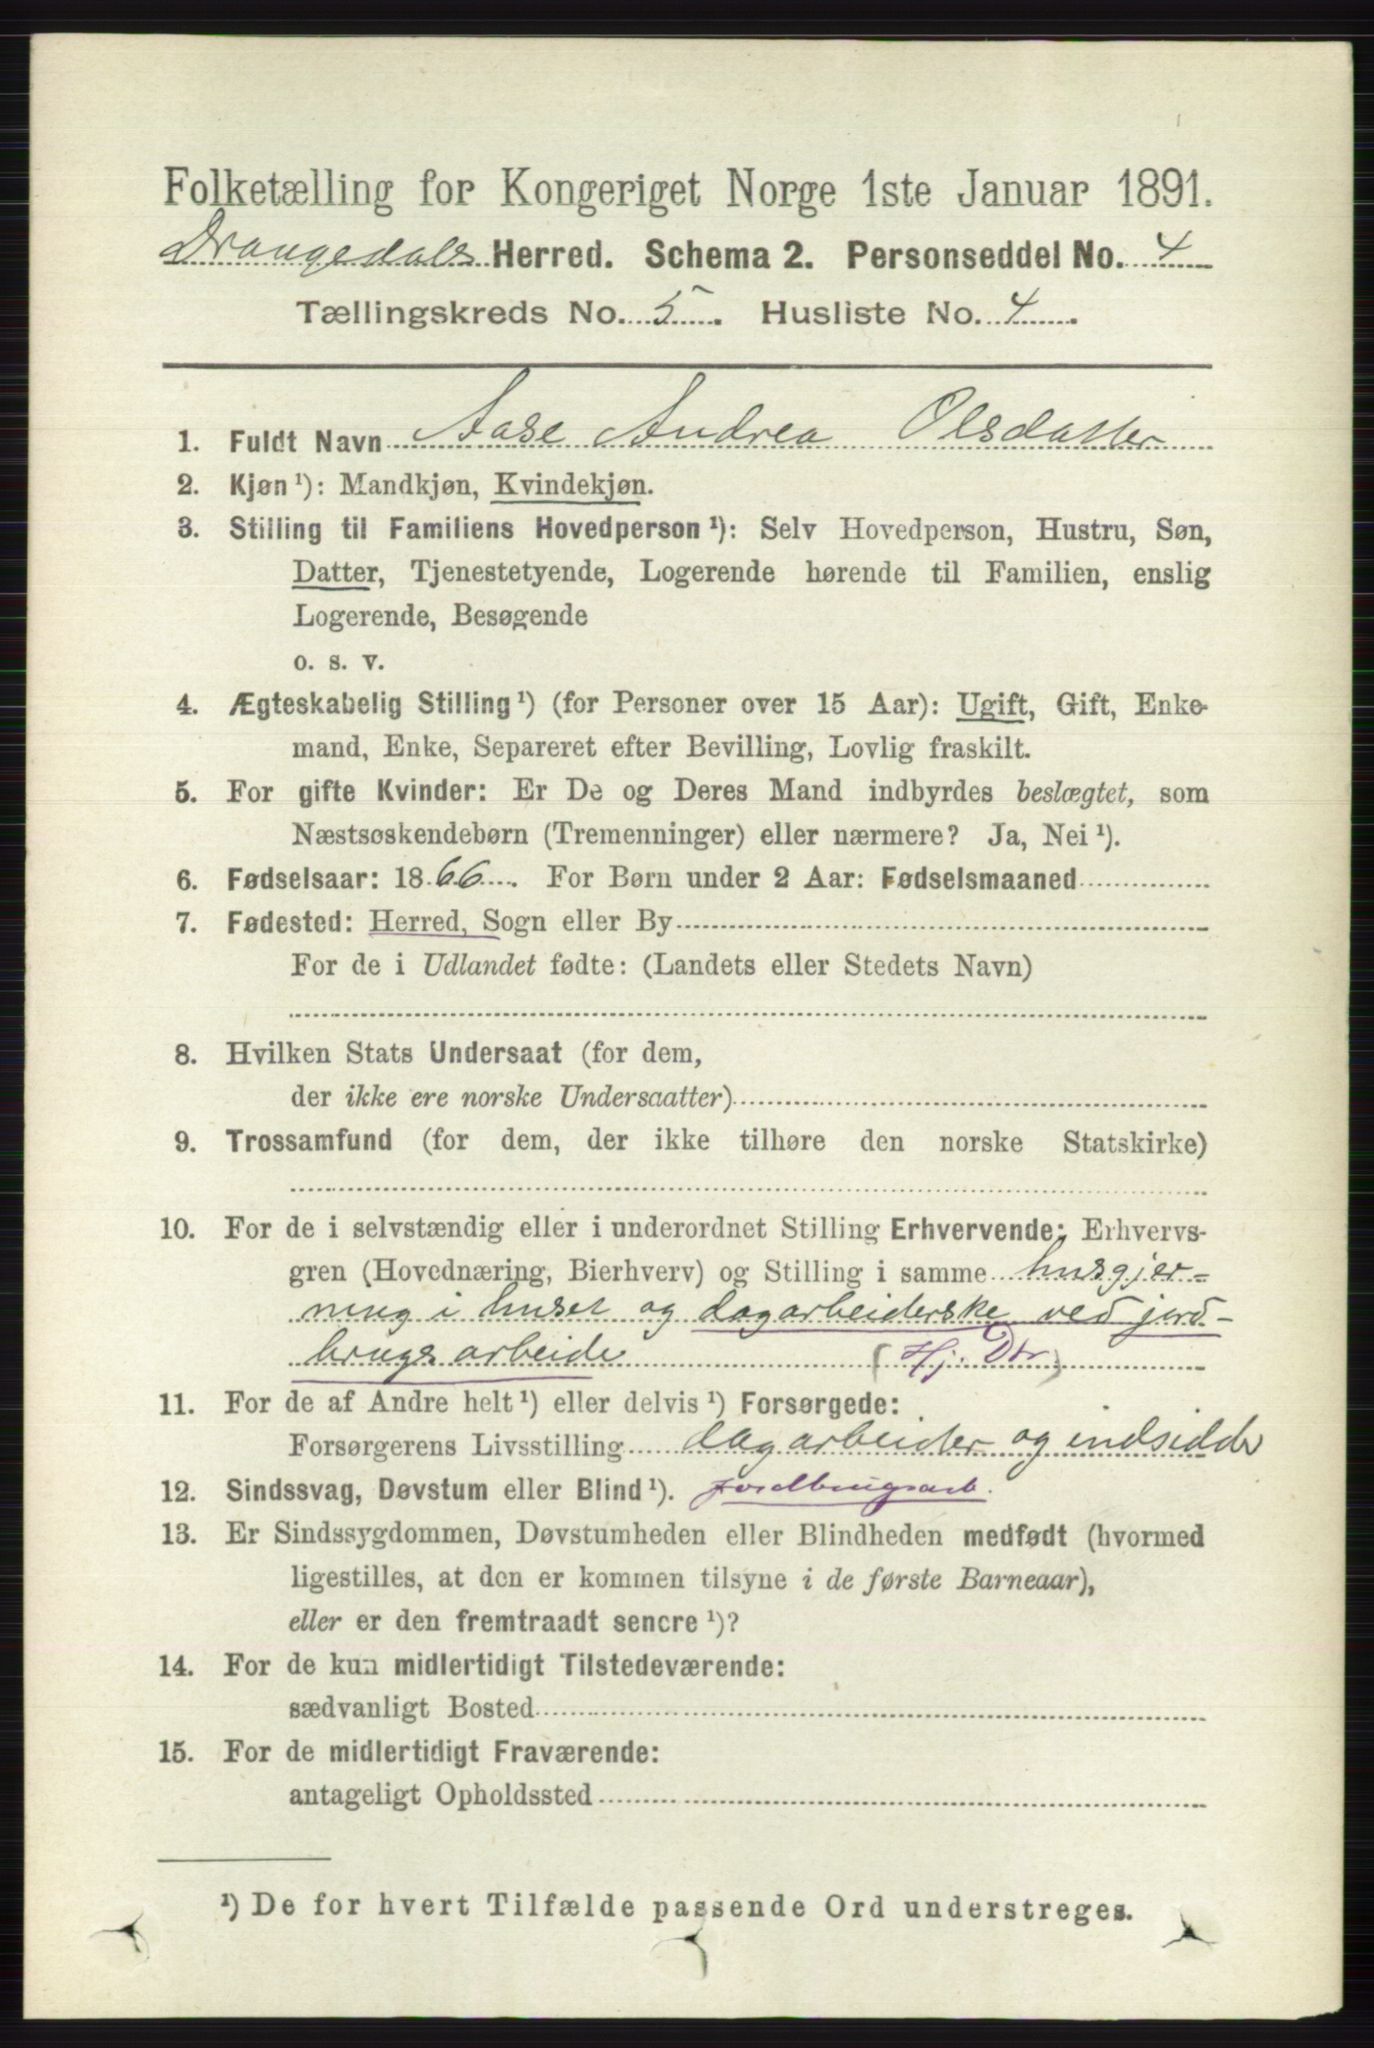 Folketælling for Kongeriget Norge 1ste Januar 1891.
Drangedals Herred. Schema 2. Personseddel No. 4
Tællingskreds No. 5. Husliste No. 4.
1. Fuldt Navn Aase Andrea Olsdatter
2. Kjøn ¹): Mandkjøn, Kvindekjøn.
3. Stilling til Familiens Hovedperson ¹): Selv Hovedperson, Hustru, Søn,
Datter, Tjenestetyende, Logerende hørende til Familien, enslig
Logerende, Besøgende
o. s. v.
4. Ægteskabelig Stilling ¹) (for Personer over 15 Aar): Ugift, Gift, Enke-
mand, Enke, Separeret efter Bevilling, Lovlig fraskilt.
5. For gifte Kvinder: Er De og Deres Mand indbyrdes beslægtet, som
Næstsøskendebørn (Tremenninger) eller nærmere? Ja, Nei ¹).
6. Fødselsaar: 1866. For Børn under 2 Aar: Fødselsmaaned
7. Fødested: Herred, Sogn eller By
For de i Udlandet fødte: (Landets eller Stedets Navn)
8. Hvilken Stats Undersaat (for dem,
der ikke ere norske Undersaatter)
9. Trossamfund (for dem, der ikke tilhøre den norske Statskirke)
10. For de i selvstændig eller i underordnet Stilling Erhvervende: Erhvervs-
gren (Hovednæring, Bierhverv) og Stilling i samme husgjer-
ning i huset og dagarbeiderske ved jord-
brugsarbeide (Hj. Dtr)
11. For de af Andre helt ¹) eller delvis ¹) Forsørgede:
Forsørgerens Livsstilling dagarbeider og indsidder
12. Sindssvag, Døvstum eller Blind ¹). Jordbrugsarb.
13. Er Sindssygdommen, Døvstumheden eller Blindheden medfødt (hvormed
ligestilles, at den er kommen tilsyne i de første Barneaar),
eller er den fremtraadt senere ¹)?
14. For de kun midlertidigt Tilstedeværende:
sædvanligt Bosted
15. For de midlertidigt Fraværende:
antageligt Opholdssted
¹) De for hvert Tilfælde passende Ord understreges.